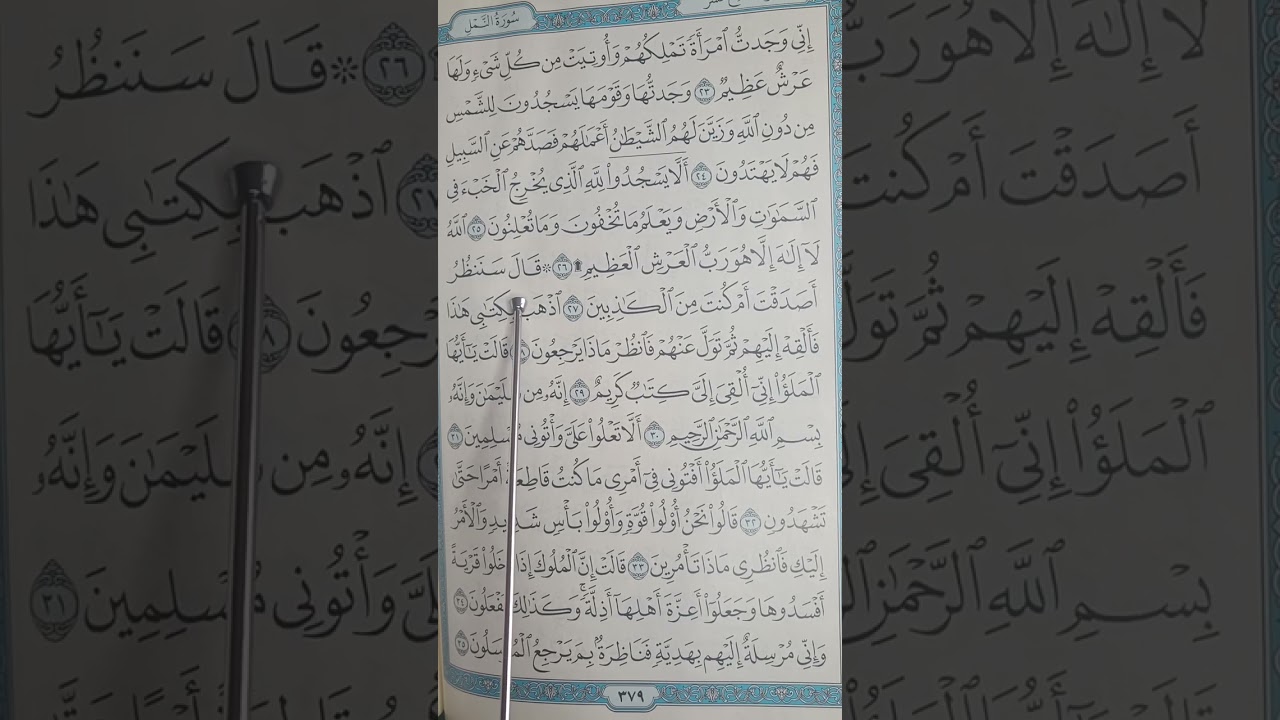 سُورَةُ النَّمْلِ
إِنِّي وَجَدتُّ ٱمْرَأَةً تَمْلِكُهُمْ وَأُوتِيَتْ مِن كُلِّ شَيْءٍ وَلَهَا
عَرْشٌ عَظِيمٌ ٢٣ وَجَدتُّهَا وَقَوْمَهَا يَسْجُدُونَ لِلشَّمْسِ
مِن دُونِ ٱللَّهِ وَزَيَّنَ لَهُمُ ٱلشَّيْطَٰنُ أَعْمَٰلَهُمْ فَصَدَّهُمْ عَنِ ٱلسَّبِيلِ
فَهُمْ لَا يَهْتَدُونَ ٢٤ أَلَّا يَسْجُدُوا۟ لِلَّهِ ٱلَّذِي يُخْرِجُ ٱلْخَبْءَ فِي
ٱلسَّمَٰوَٰتِ وَٱلْأَرْضِ وَيَعْلَمُ مَا تُخْفُونَ وَمَا تُعْلِنُونَ ٢٥ ٱللَّهُ
لَآ إِلَٰهَ إِلَّا هُوَ رَبُّ ٱلْعَرْشِ ٱلْعَظِيمِ ۩ ٢٦ ۞ قَالَ سَنَنظُرُ
أَصَدَقْتَ أَمْ كُنتَ مِنَ ٱلْكَٰذِبِينَ ٢٧ ٱذْهَب بِّكِتَٰبِي هَٰذَا
فَأَلْقِهْ إِلَيْهِمْ ثُمَّ تَوَلَّ عَنْهُمْ فَٱنظُرْ مَاذَا يَرْجِعُونَ ٢٨ قَالَتْ يَٰٓأَيُّهَا
ٱلْمَلَؤُا۟ إِنِّيٓ أُلْقِيَ إِلَيَّ كِتَٰبٌ كَرِيمٌ ٢٩ إِنَّهُۥ مِن سُلَيْمَٰنَ وَإِنَّهُۥ
بِسْمِ ٱللَّهِ ٱلرَّحْمَٰنِ ٱلرَّحِيمِ ٣٠ أَلَّا تَعْلُوا۟ عَلَيَّ وَأْتُونِي مُسْلِمِينَ ٣١
قَالَتْ يَٰٓأَيُّهَا ٱلْمَلَؤُا۟ أَفْتُونِي فِيٓ أَمْرِي مَا كُنتُ قَاطِعَةً أَمْرًا حَتَّىٰ
تَشْهَدُونِ ٣٢ قَالُوا۟ نَحْنُ أُو۟لُوا۟ قُوَّةٍ وَأُو۟لُوا۟ بَأْسٍ شَدِيدٍ وَٱلْأَمْرُ
إِلَيْكِ فَٱنظُرِي مَاذَا تَأْمُرِينَ ٣٣ قَالَتْ إِنَّ ٱلْمُلُوكَ إِذَا دَخَلُوا۟ قَرْيَةً
أَفْسَدُوهَا وَجَعَلُوٓا۟ أَعِزَّةَ أَهْلِهَآ أَذِلَّةً ۖ وَكَذَٰلِكَ يَفْعَلُونَ ٣٤
وَإِنِّي مُرْسِلَةٌ إِلَيْهِم بِهَدِيَّةٍ فَنَاظِرَةٌۢ بِمَ يَرْجِعُ ٱلْمُرْسَلُونَ ٣٥
٣٧٩